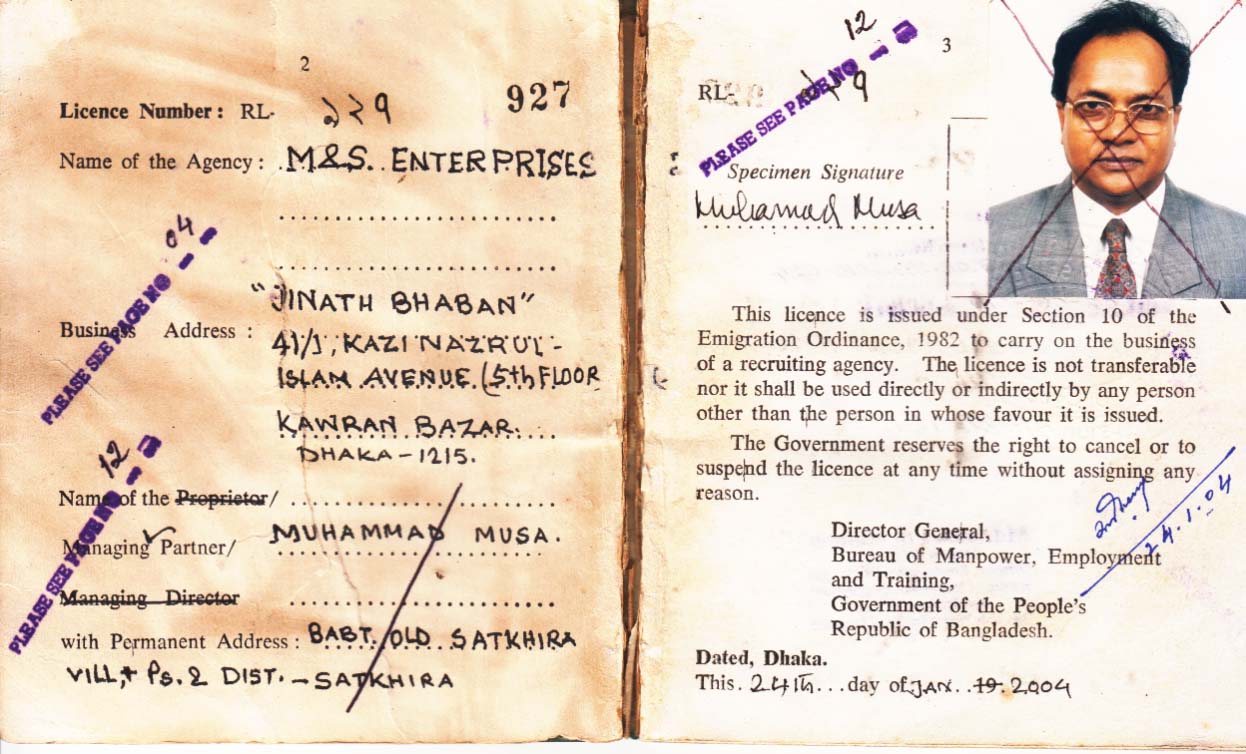 2
Licence Number : RL- ৯২৭ 927
Name of the Agency : M&S. ENTERPRISES
PLEASE SEE PAGE NO 04
"JINATH BHABAN"
Business Address :
41/1, KAZI NAZRUL-
ISLAM AVENUE (5th FLOOR
KAWRAN BAZAR.
DHAKA-1215.
PLEASE SEE PAGE NO 12
Name of the Proprietor/
Managing Partner/ MUHAMMAD MUSA.
Managing Director
with Permanent Address : BABT. OLD SATKHIRA
VILL,+ Ps. & DIST. - SATKHIRA
3
RL-
PLEASE SEE PAGE NO 12
Specimen Signature
Muhamad Musa
This licence is issued under Section 10 of the
Emigration Ordinance, 1982 to carry on the business
of a recruiting agency. The licence is not transferable
nor it shall be used directly or indirectly by any person
other than the person in whose favour it is issued.
The Government reserves the right to cancel or to
suspend the licence at any time without assigning any
reason.
24.1.04
Director General,
Bureau of Manpower, Employment
and Training,
Government of the People's
Republic of Bangladesh.
Dated, Dhaka.
This. 24th...day of JAN..19.2004